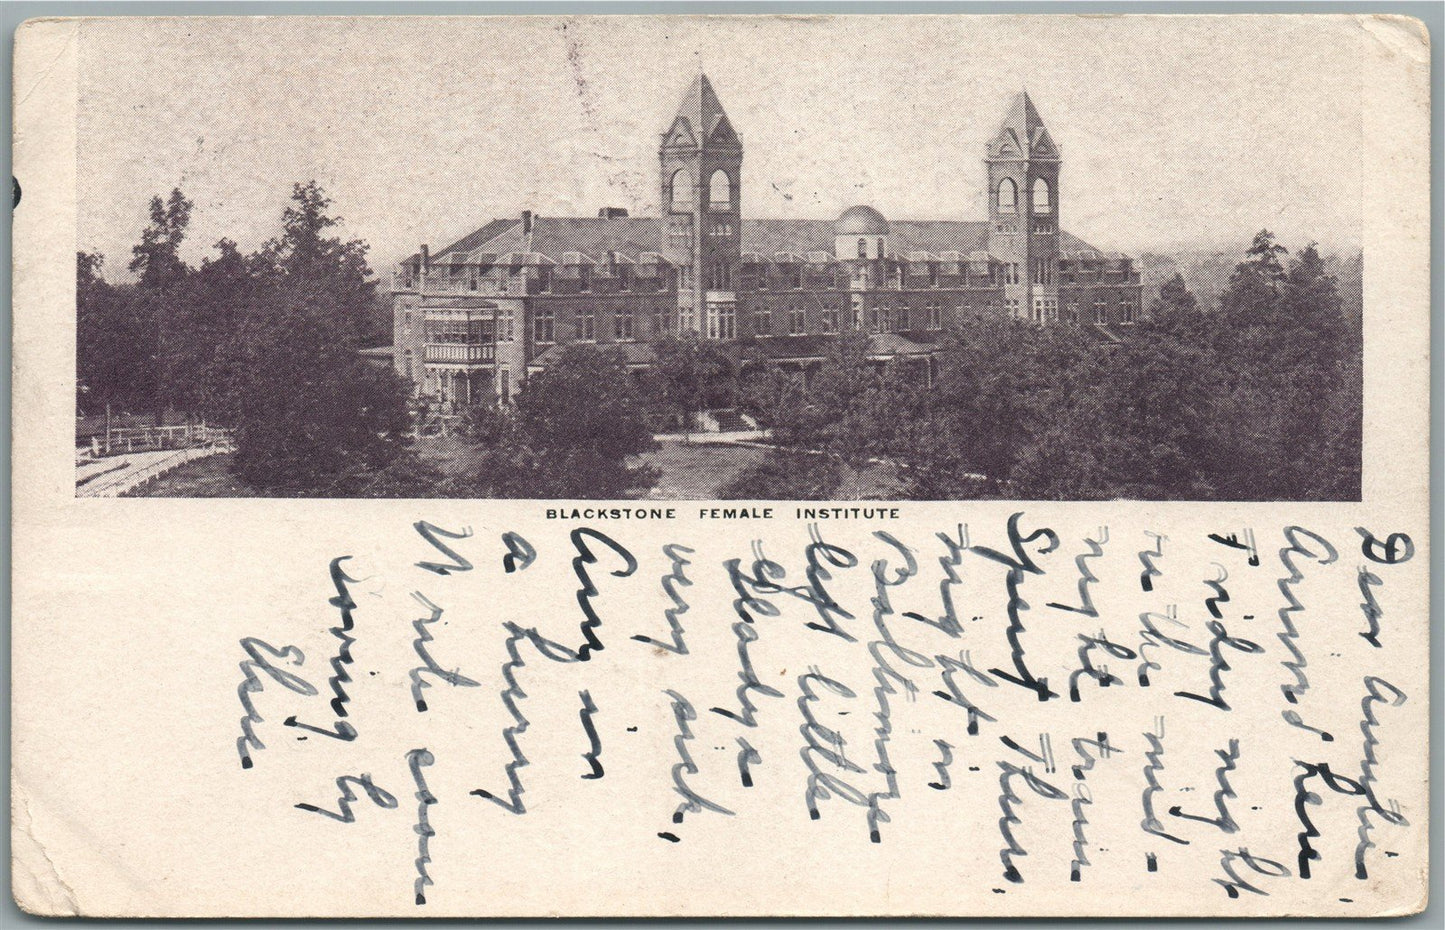 BLACKSTONE FEMALE INSTITUTE
Dear Aunnie.
Arrived here
Friday night
in the mid-
night train
Spent Thurs.
night in
Baltimore
left little
Gladys
very sick,
Am in
a hurry
Write soon
loving ly
Elsie